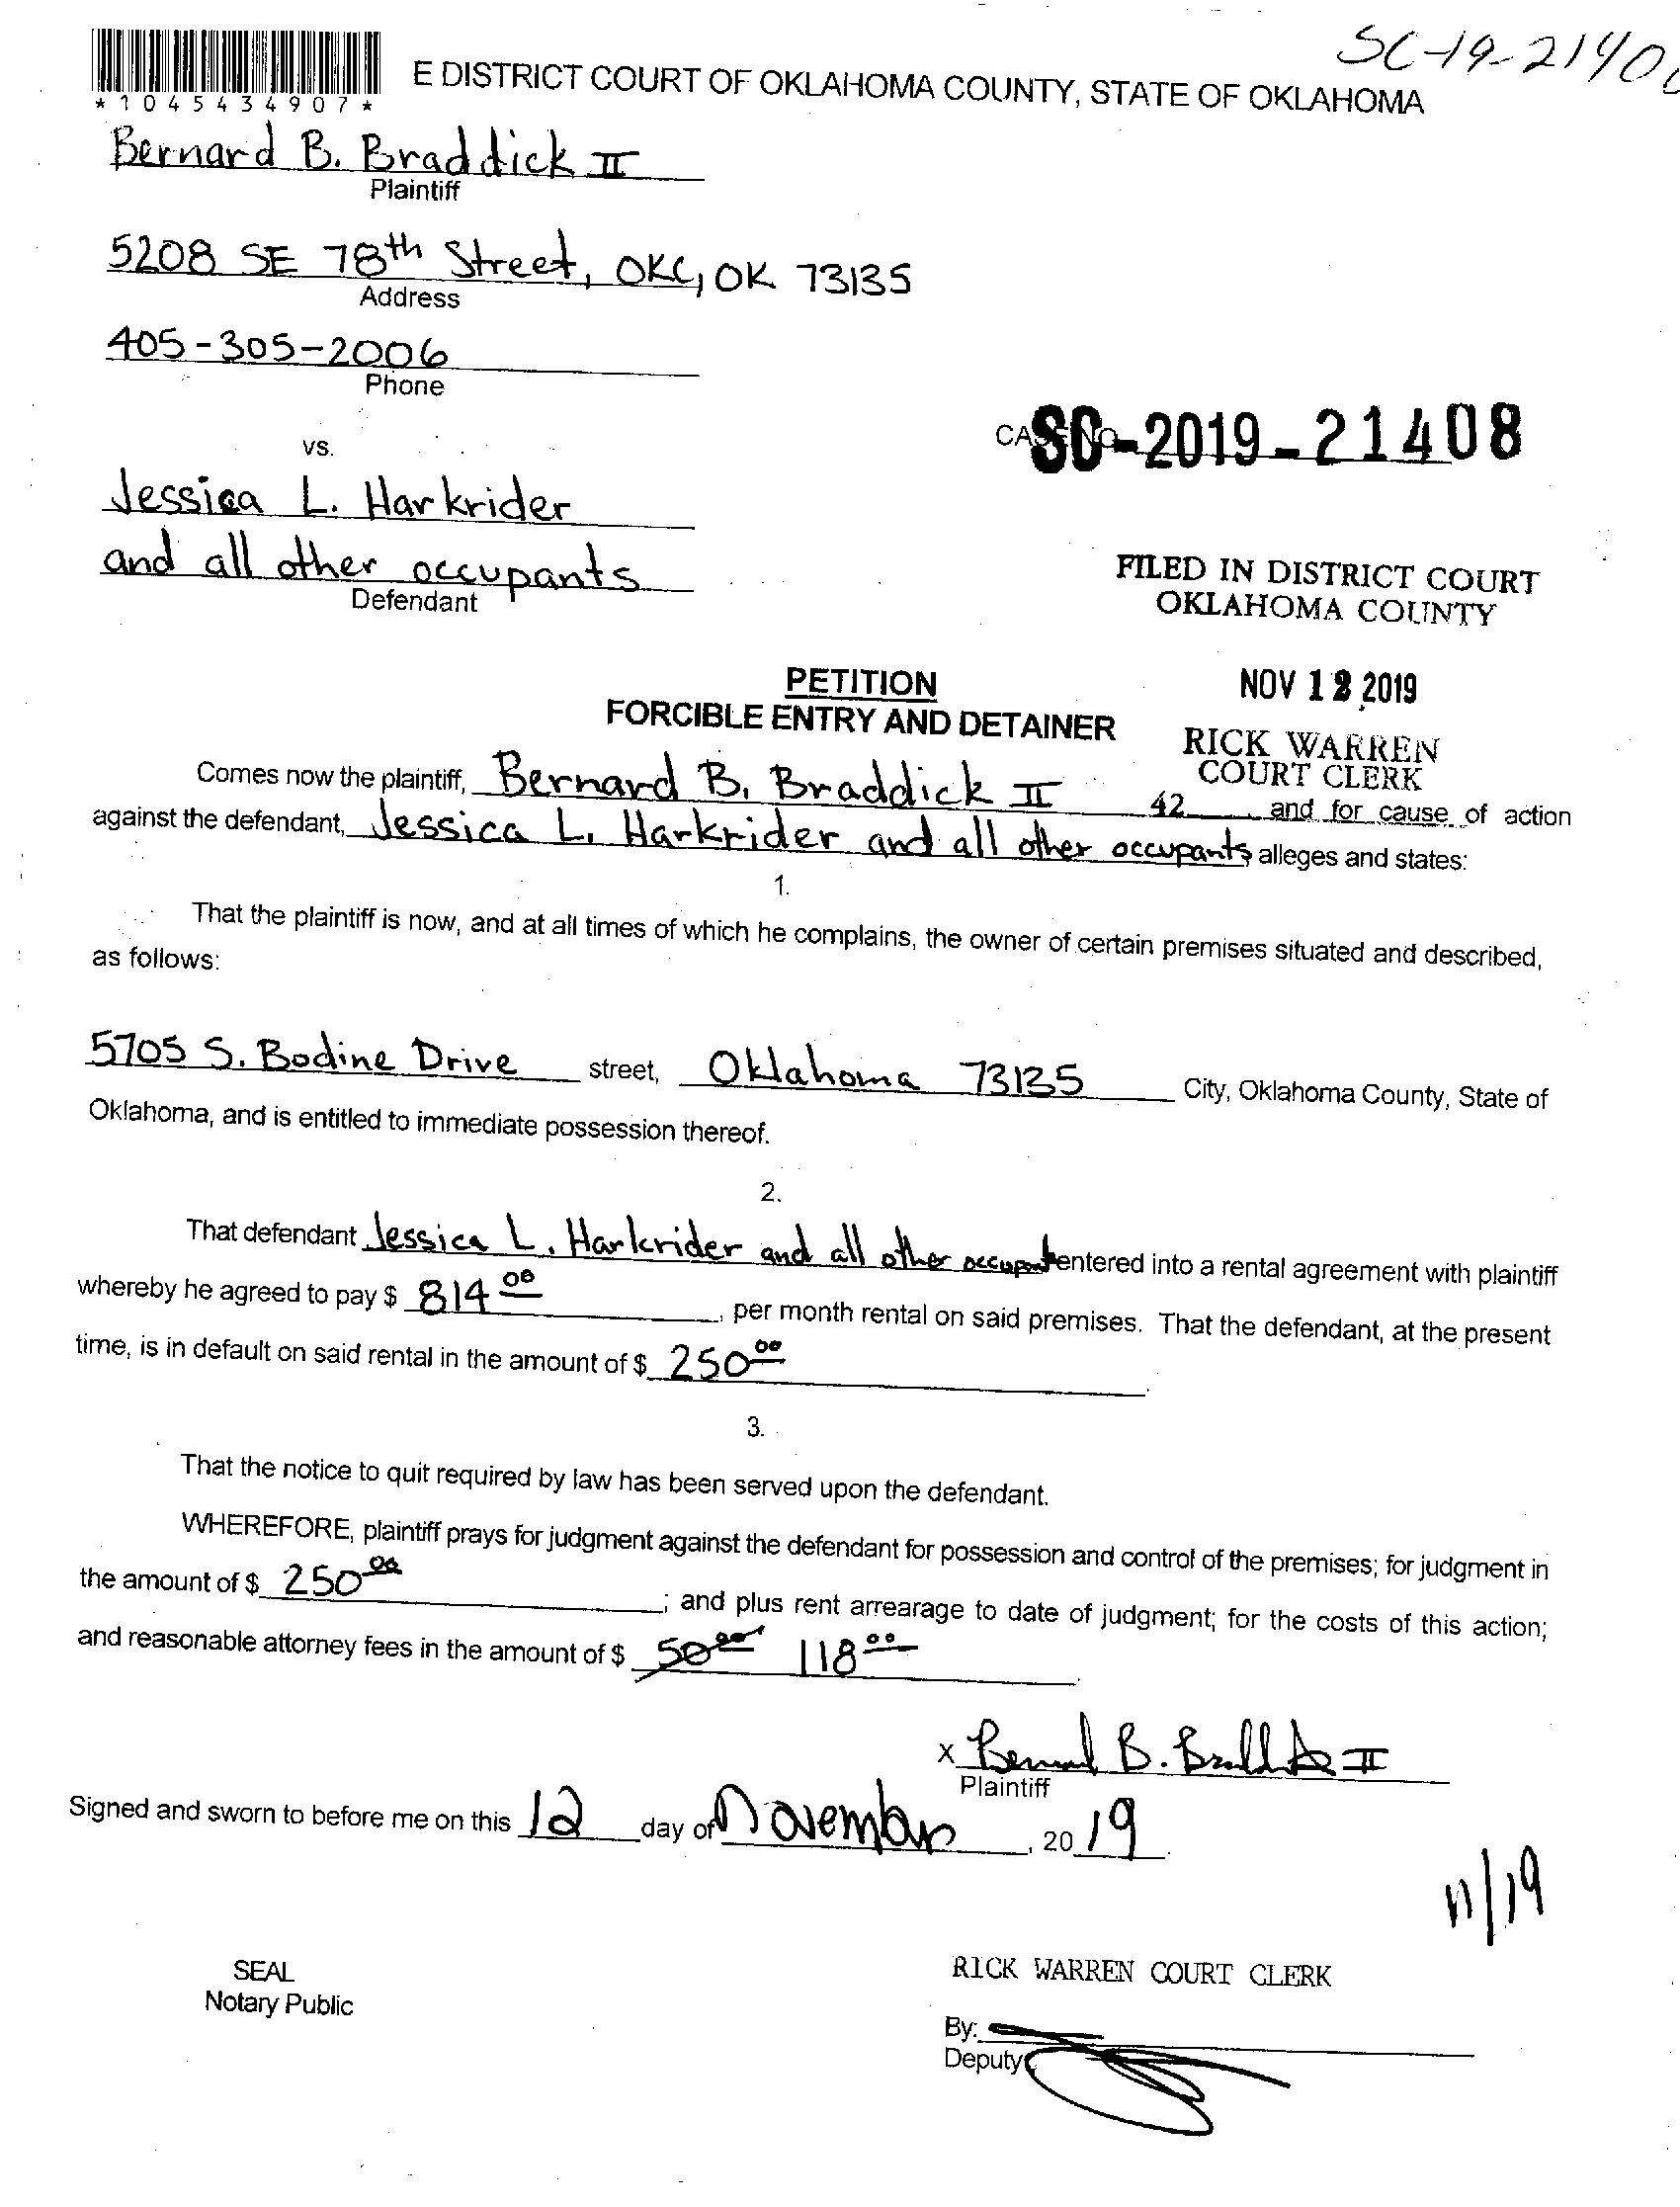 SC-19-2140
*1045434907*
E DISTRICT COURT OF OKLAHOMA COUNTY, STATE OF OKLAHOMA
Bernard B. Braddick II
Plaintiff
5208 SE 78th Street, OKC, OK 73135
Address
405-305-2006
Phone
vs.
SC-2019-21408
Jessica L. Harkrider
and all other occupants
Defendant
FILED IN DISTRICT COURT
OKLAHOMA COUNTY
PETITION
FORCIBLE ENTRY AND DETAINER
NOV 12 2019
RICK WARREN
COURT CLERK
42
Comes now the plaintiff, Bernard B. Braddick II and for cause of action
against the defendant, Jessica L. Harkrider and all other occupants alleges and states:
1.
That the plaintiff is now, and at all times of which he complains, the owner of certain premises situated and described,
as follows:
5705 S. Bodine Drive street, Oklahoma 73135 City, Oklahoma County, State of
Oklahoma, and is entitled to immediate possession thereof.
2.
That defendant Jessica L. Harkrider and all other occupant entered into a rental agreement with plaintiff
whereby he agreed to pay $ 814 00, per month rental on said premises. That the defendant, at the present
time, is in default on said rental in the amount of $ 250 00
3.
That the notice to quit required by law has been served upon the defendant.
WHEREFORE, plaintiff prays for judgment against the defendant for possession and control of the premises; for judgment in
the amount of $ 250 00; and plus rent arrearage to date of judgment; for the costs of this action;
and reasonable attorney fees in the amount of $ 50 00 118 00
x Bernard B. Braddick II
Plaintiff
Signed and sworn to before me on this 12 day of November, 20 19
11/19
SEAL
Notary Public
RICK WARREN COURT CLERK
By:
Deputy